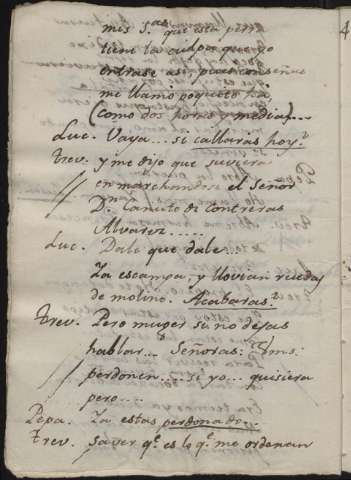 mis S.as que esta perra
tiene la culpa que yo
entrase asi, pues con señas
me llamó poquito há,
(como dos horas y media)...
Luc. Vaya... si callarás hoy?
Trev. y me dijo que subiera
en marchandose el Señor
D.n Canuto de Contreras
Alvarez....
Luc. Dale que dale...
Ya escampa, y llovian ruedas
de molino. Acabaras?
Trev. Pero muger si no dejas
hablar... Señoras: Vms.
perdonen.... si yo... quisiera
pero....
Pepa. Ya estas perdonado...
Trev. Saver q.e es lo q.e me ordenan